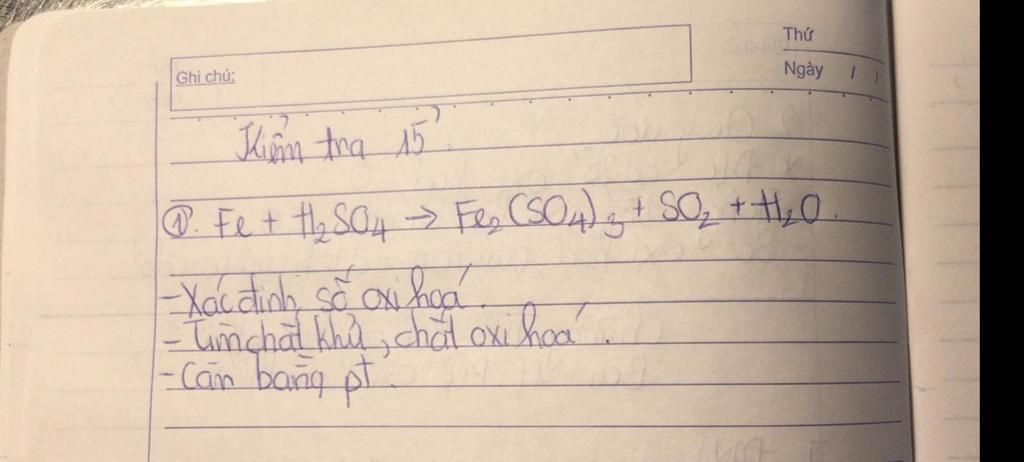 Thứ
Ghi chú:
Ngày / /
Kiểm tra 15'.
①. Fe + H₂SO₄ → Fe₂(SO₄)₃ + SO₂ + H₂O.
- Xác định số oxi hoá.
- Tìm chất khử, chất oxi hoá.
- Cân bằng pt.